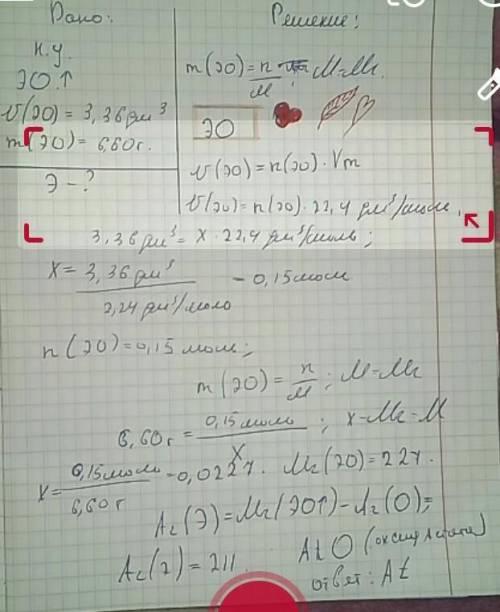 Дано:
Решение:
н.у.
ЭО↑
V(ЭО) = 3,36 дм³
m(ЭО) = 6,60 г.
Э - ?
m(ЭО) = n/M ; M=Mr.
ЭО
V(ЭО) = n(ЭО) · Vm
V(ЭО) = n(ЭО) · 22,4 дм³/моль.
3,36 дм³ = x · 22,4 дм³/моль;
x = 3,36 дм³ / 2,24 дм³/моль - 0,15 моль
n(ЭО) = 0,15 моль;
m(ЭО) = n/M ; M=Mr
6,60 г = 0,15 моль / x ; x=Mr=M
x = 0,15 моль / 6,60 г -0,0227. Mr(ЭО) = 227.
Ar(Э) = Mr(ЭО↑) - Ar(O);
Ar(Э) = 211. AtO (оксид Астата)
ответ: At